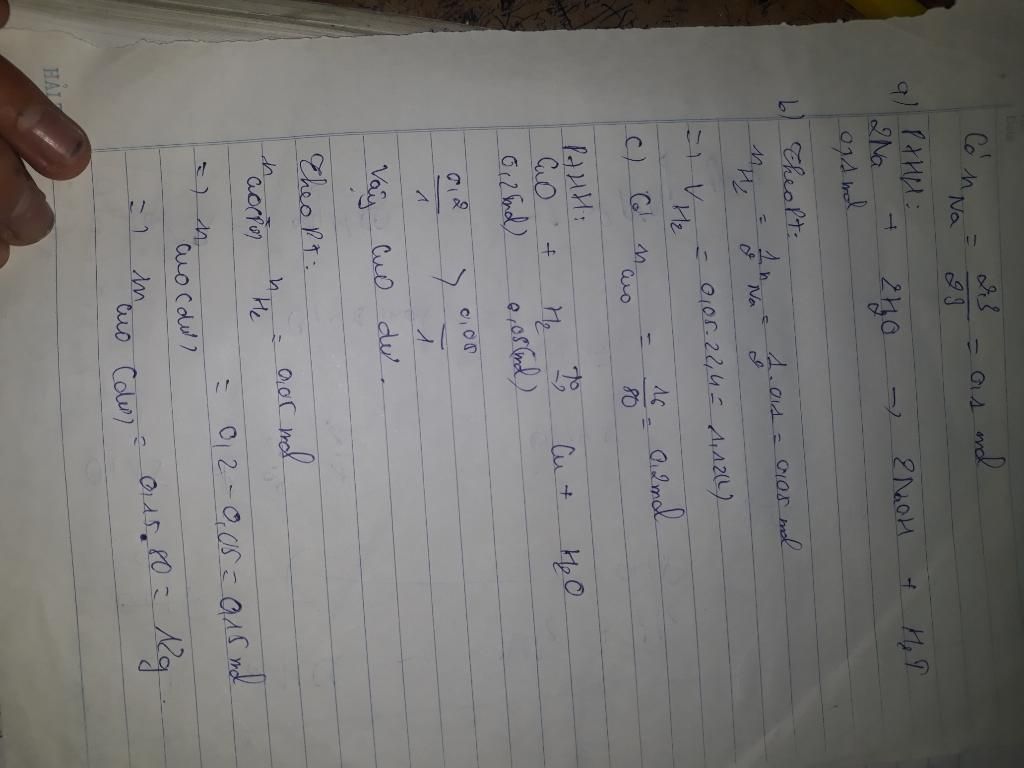 Có n Na = 2,3 / 23 = 0,1 mol
a) PTHH:
2Na + 2H2O → 2NaOH + H2↑
0,1mol
b) Theo PT:
n H2 = 1/2 n Na = 1/2 . 0,1 = 0,05 mol
=) V H2 = 0,05.22,4 = 1,12(L)
c) Có n CuO = 16/80 = 0,2mol
PTHH:
CuO + H2 →to Cu + H2O
0,2(mol) 0,05(mol)
0,2/1 > 0,05/1
Vậy CuO dư.
Theo PT:
n CuO(pư) = n H2 = 0,05 mol
=) n CuO (dư) = 0,2 - 0,05 = 0,15 mol
=) m CuO (dư) = 0,15.80 = 12g.
HẢI